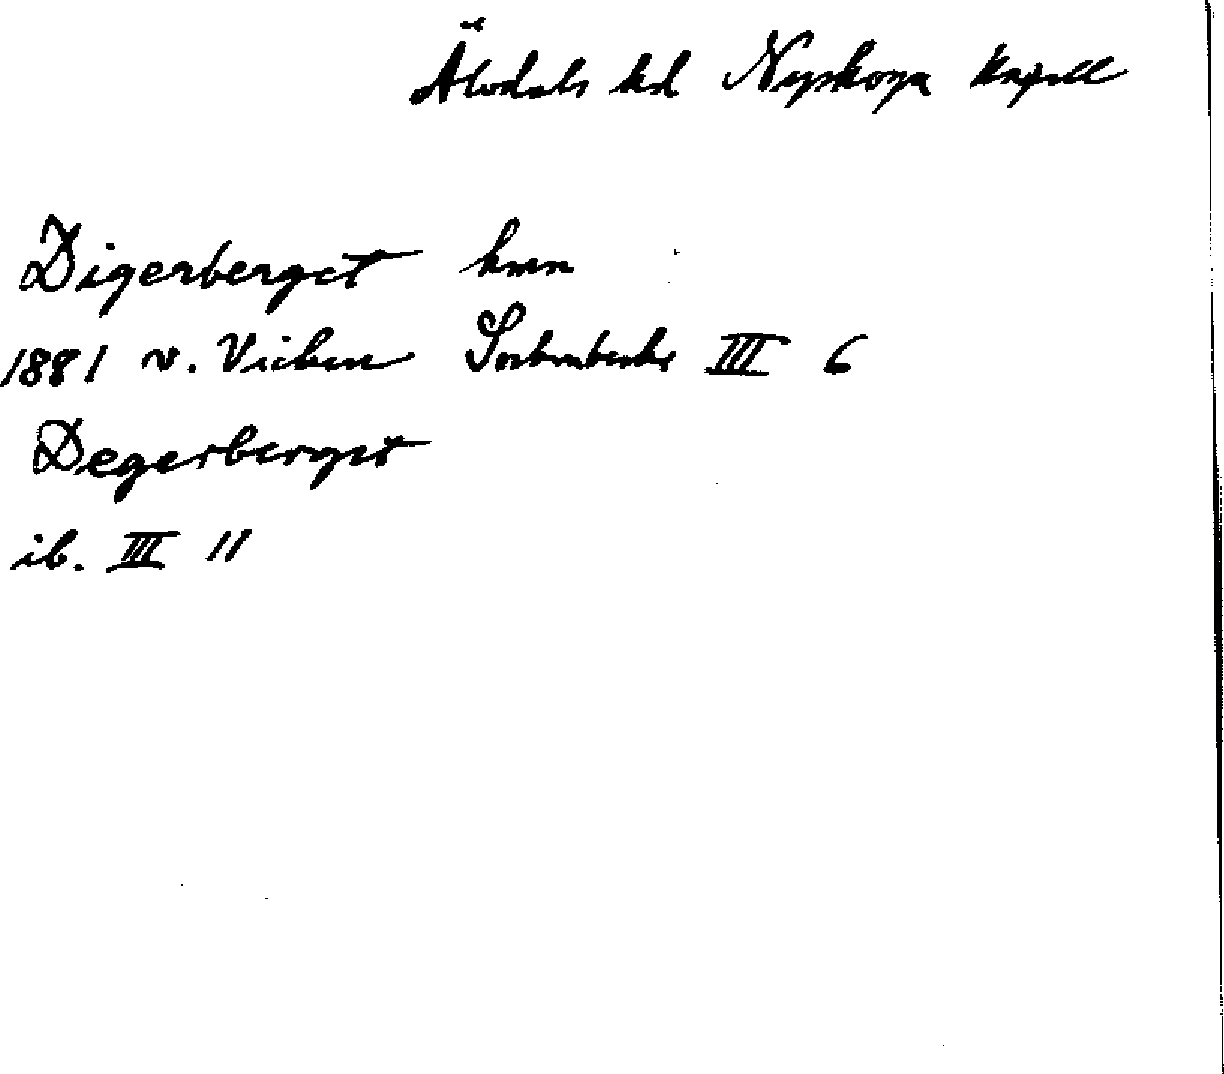 Älvdals hd Nyskoga kapell
Digerberget hmn
1881 v. Viken Sockenbeskr III 6
Degerberget
ib. III 11